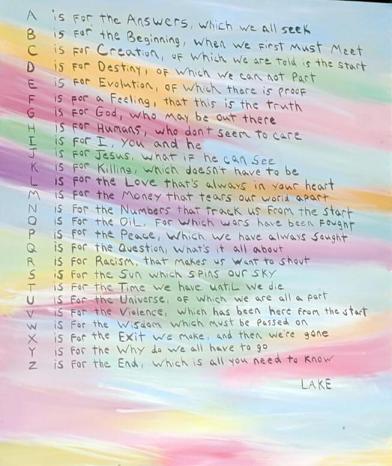 A is for the Answers, which we all seek
B is for the Beginning, when we first Must Meet
C is for Creation, of which we are told is the start
D is for Destiny, of which we can not Part
E is for Evolution, of which there is proof
F is for a Feeling, that this is the truth
G is for God, who may be out there
H is for Humans, who don't seem to care
I is for I, you and he
J is for Jesus, what if he can see
K is for Killing, which doesn't have to be
L is for the Love that's always in your heart
M is for the Money that tears our world apart
N is for the Numbers that track us from the start
O is for the OiL, for which wars have been fought
P is for the Peace, which we have always sought
Q is for the Question, what's it all about
R is for Racism, that makes us want to shout
S is for the Sun which spins our sky
T is for the Time we have until we die
U is for the Universe, of which we are all a part
V is for the Violence, which has been here from the start
W is for the Wisdom which must be passed on
X is for the Exit we make, and then we're gone
Y is for the Why do we all have to go
Z is for the End, which is all you need to know
LAKE